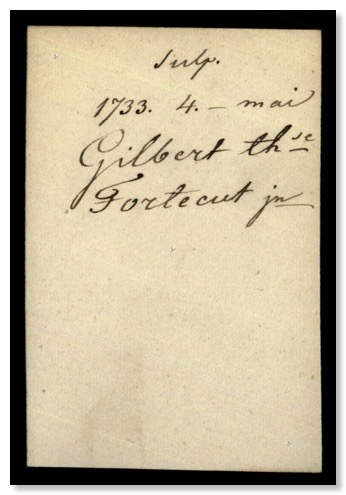 Sulp.
1733. 4. - mai
Gilbert thse
Fortecut jn